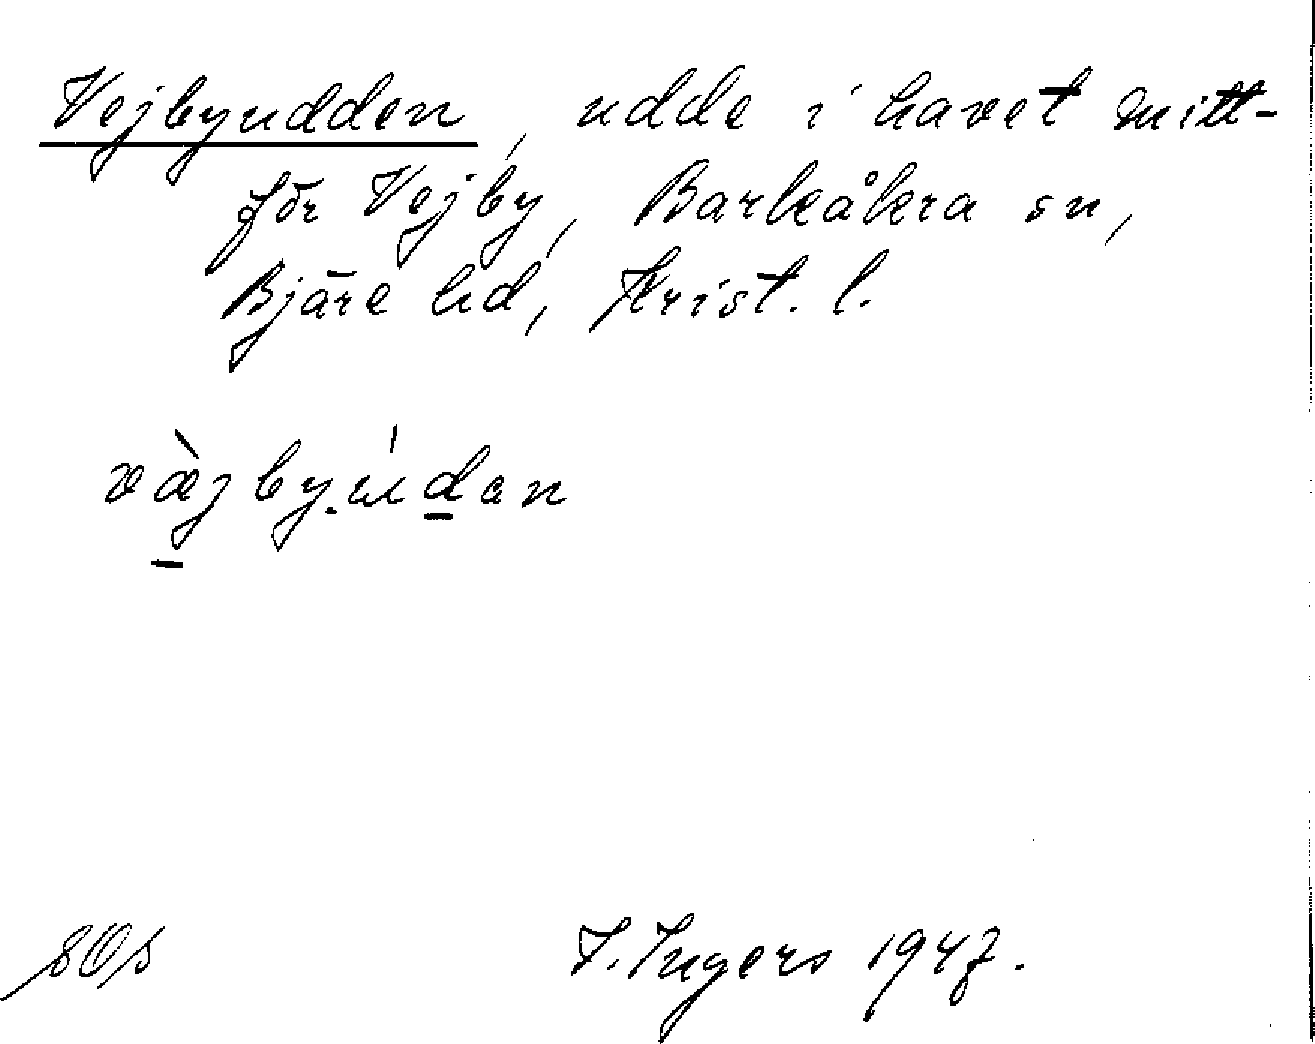 Vejbyudden, udde i havet mitt-
för Vejby, Barkåkra sn,
Bjäre hd, Krist. l.
væ̀jby.údan
SOs
I. Ingers 1947.